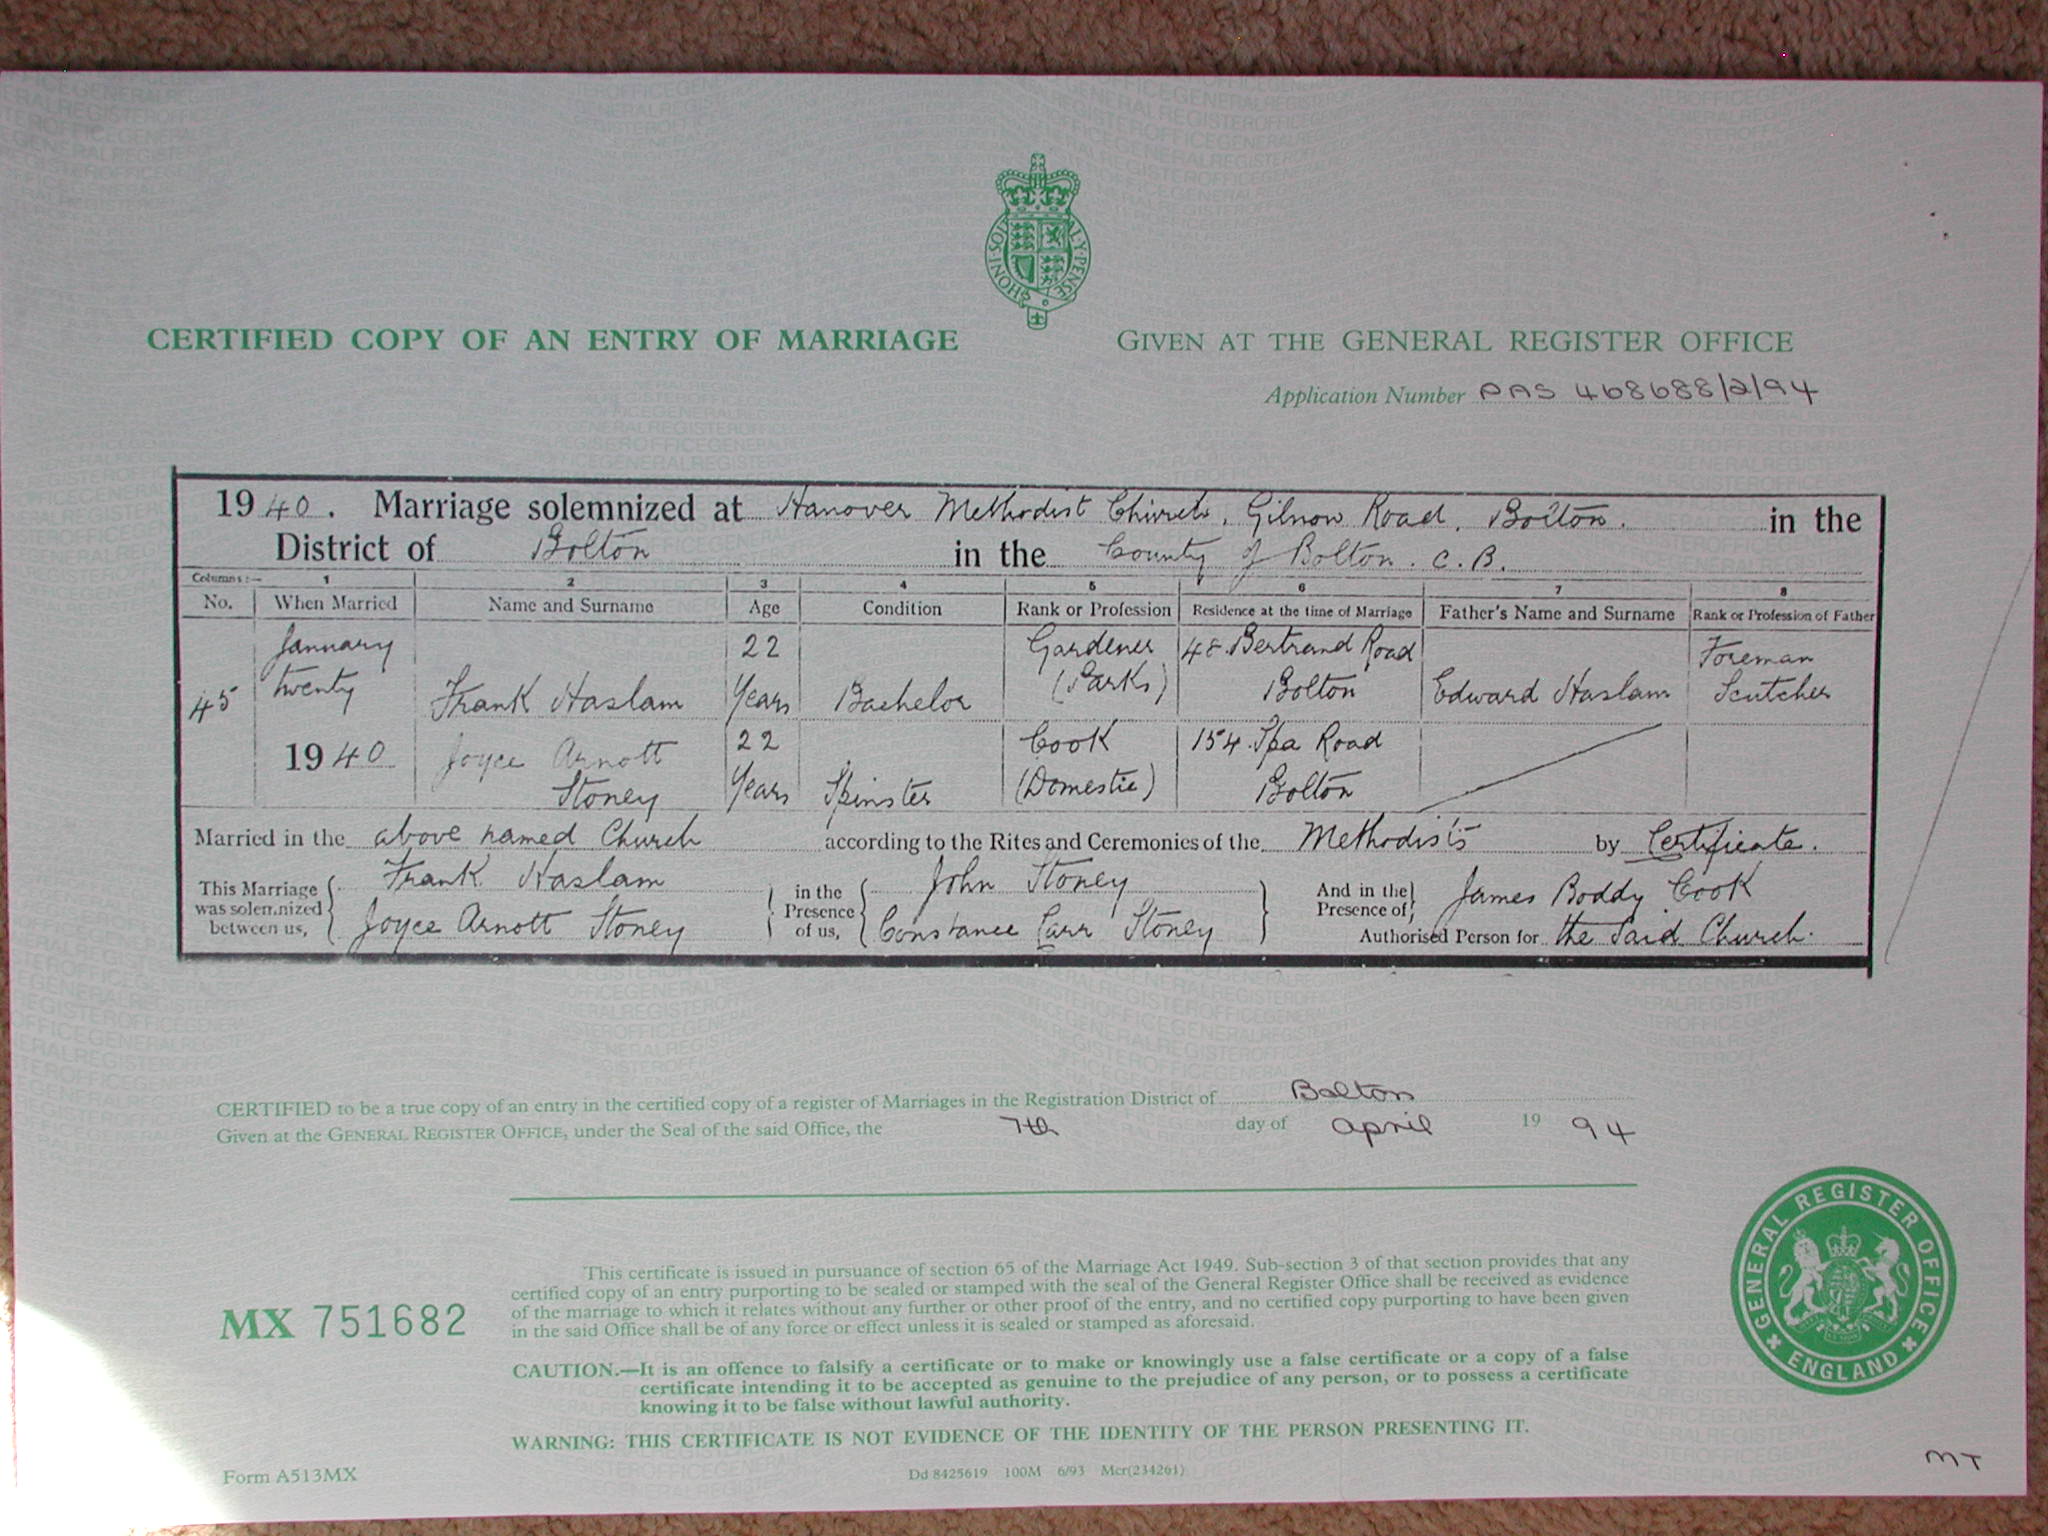 HONI·SOI AL·Y·PENSE
CERTIFIED COPY OF AN ENTRY OF MARRIAGE
GIVEN AT THE GENERAL REGISTER OFFICE
Application Number PAS 468688/2/94
1940. Marriage solemnized at Hanover Methodist Church, Gilnow Road, Bolton. in the
District of Bolton in the County of Bolton. C.B.
Columns:— 1 2 3 4 5 6 7 8
No. When Married Name and Surname Age Condition Rank or Profession Residence at the time of Marriage Father's Name and Surname Rank or Profession of Father
January 22 Gardener 48 Bertrand Road Foreman
45 twenty Frank Haslam Years Bachelor (Parks) Bolton Edward Haslam Scutcher
1940 Joyce Arnott 22 Cook 154 Spa Road
Stoney Years Spinster (Domestic) Bolton
Married in the above named Church according to the Rites and Ceremonies of the Methodists by Certificate.
This Marriage was solemnized between us, Frank Haslam Joyce Arnott Stoney
in the Presence of us, John Stoney Constance Carr Stoney
And in the Presence of James Boddy Cook
Authorised Person for the said Church.
CERTIFIED to be a true copy of an entry in the certified copy of a register of Marriages in the Registration District of Bolton
Given at the GENERAL REGISTER OFFICE, under the Seal of the said Office, the 7th day of April 19 94
MX 751682
This certificate is issued in pursuance of section 65 of the Marriage Act 1949. Sub-section 3 of that section provides that any
certified copy of an entry purporting to be sealed or stamped with the seal of the General Register Office shall be received as evidence
of the marriage to which it relates without any further or other proof of the entry, and no certified copy purporting to have been given
in the said Office shall be of any force or effect unless it is sealed or stamped as aforesaid.
CAUTION.—It is an offence to falsify a certificate or to make or knowingly use a false certificate or a copy of a false
certificate intending it to be accepted as genuine to the prejudice of any person, or to possess a certificate
knowing it to be false without lawful authority.
WARNING: THIS CERTIFICATE IS NOT EVIDENCE OF THE IDENTITY OF THE PERSON PRESENTING IT.
GENERAL REGISTER OFFICE
ENGLAND
Form A513MX
Dd 8425619 100M 6/93 Mcr(234261)
MT